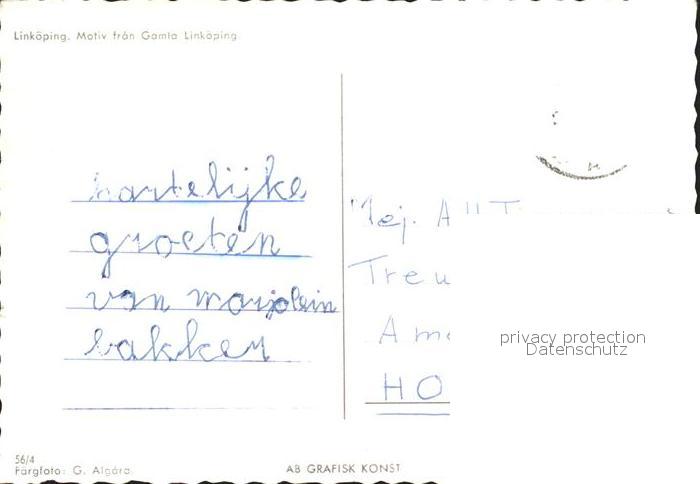 Linköping. Motiv från Gamla Linköping
hartelijke
groeten
van marjolein
bakker
Mej. A
Treu
Am
HO
privacy protection
Datenschutz
56/4
Färgfoto: G. Algård
AB GRAFISK KONST